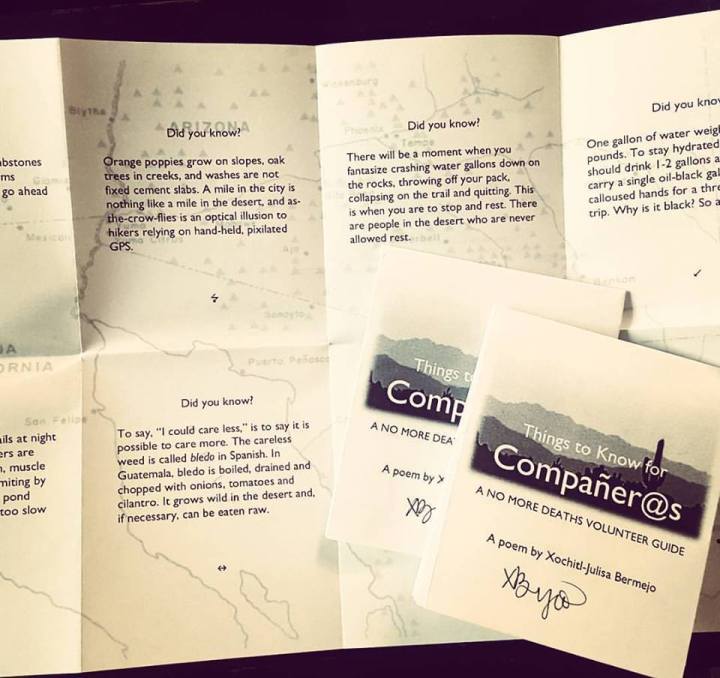 Blythe
Wickenburg
ARIZONA
Phoenix
Tempe
Did you know?
Orange poppies grow on slopes, oak
trees in creeks, and washes are not
fixed cement slabs. A mile in the city is
nothing like a mile in the desert, and as-
the-crow-flies is an optical illusion to
hikers relying on hand-held, pixilated
GPS.
Did you know?
There will be a moment when you
fantasize crashing water gallons down on
the rocks, throwing off your pack,
collapsing on the trail and quitting. This
is when you are to stop and rest. There
are people in the desert who are never
allowed rest.
Did you know
One gallon of water weig
pounds. To stay hydrated
should drink 1-2 gallons a
carry a single oil-black gal
calloused hands for a thr
trip. Why is it black? So a
✓
bstones
ms
go ahead
Mexicali
Ajo
Sonoyta
Benson
Puerto Peñasco
San Felipe
IA
ORNIA
Did you know?
To say, “I could care less,” is to say it is
possible to care more. The careless
weed is called bledo in Spanish. In
Guatemala, bledo is boiled, drained and
chopped with onions, tomatoes and
cilantro. It grows wild in the desert and,
if necessary, can be eaten raw.
↔
ils at night
ers are
, muscle
miting by
pond
too slow
Things t
Comp
A NO MORE DEA
A poem by X
Things to Know for
Compañer@s
A NO MORE DEATHS VOLUNTEER GUIDE
A poem by Xochitl-Julisa Bermejo